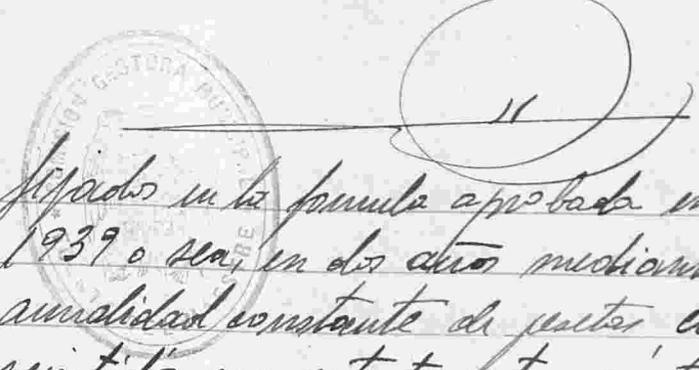 COMISION GESTORA MUNICIPAL
fijados en la formula aprobada en
1939 o sea, en dos años median
anualidad constante de pesetas